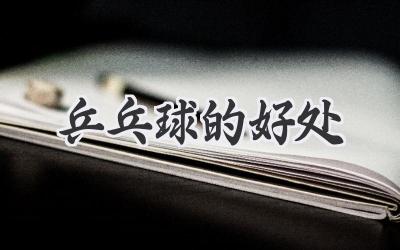 乒乓球的好处